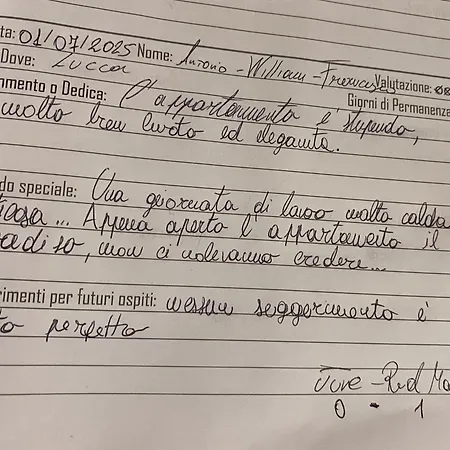 ta: 01/07/2025 Nome: Antonio - William - Valutazione:
Dove: Lucca
mmento o Dedica: L'appartamento è stupendo, Giorni di Permanenza
molto ben curato ed elegante.
do speciale: Una giornata di lavoro molto calda
ticosa... Appena aperto l'appartamento il
adiso, non ci volevamo credere...
rimenti per futuri ospiti: nessun suggerimento è
to perfetto
Juve - Red Ma
0 - 1